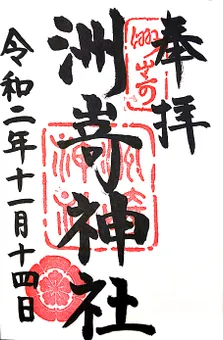 奉拝
洲嵜神社
令和二年十一月十四日